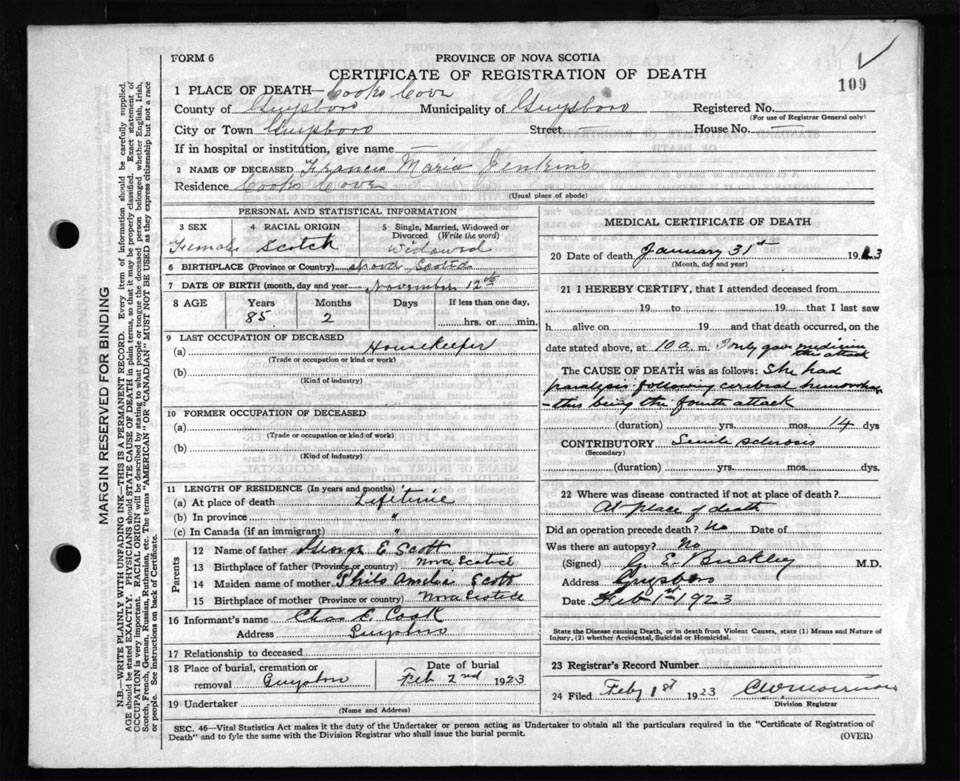 FORM 6
PROVINCE OF NOVA SCOTIA
CERTIFICATE OF REGISTRATION OF DEATH
109
1 PLACE OF DEATH— Cooks Cove
County of Guysboro Municipality of Guysboro Registered No.
(For use of Registrar General only)
City or Town Guysboro Street — House No. —
If in hospital or institution, give name —
2 NAME OF DECEASED Francis Maria Jenkins
Residence Cooks Cove
(Usual place of abode)
PERSONAL AND STATISTICAL INFORMATION
3 SEX 4 RACIAL ORIGIN 5 Single, Married, Widowed or Divorced (Write the word)
Female Scotch Widowed
6 BIRTHPLACE (Province or Country) Nova Scotia
7 DATE OF BIRTH (month, day and year) November 12th
8 AGE Years Months Days If less than one day,
85 2 hrs. or min.
9 LAST OCCUPATION OF DECEASED
(a) Housekeeper
(Trade or occupation or kind or work)
(b)
(Kind of industry)
10 FORMER OCCUPATION OF DECEASED
(a)
(Trade or occupation or kind of work)
(b)
(Kind of industry)
11 LENGTH OF RESIDENCE (In years and months)
(a) At place of death Lifetime
(b) In province "
(c) In Canada (if an immigrant) "
Parents
12 Name of father George E Scott
13 Birthplace of father (Province or country) Nova Scotia
14 Maiden name of mother Amelia Scott
15 Birthplace of mother (Province or country) Nova Scotia
16 Informant's name Chas E. Cook
Address Guysboro
17 Relationship to deceased
18 Place of burial, cremation or removal Guysboro Date of burial Feb 2nd 1923
19 Undertaker
(Name and Address)
MEDICAL CERTIFICATE OF DEATH
20 Date of death January 31st 1923
(Month, day and year)
21 I HEREBY CERTIFY, that I attended deceased from
19 to 19 that I last saw
h alive on 19 and that death occurred, on the
date stated above, at 10 a. m. I only gave medicine this attack
The CAUSE OF DEATH was as follows: She had
paralysis following cerebral hemorrhage
- this being the fourth attack
(duration) yrs. mos. 14 dys
CONTRIBUTORY Senile sclerosis
(Secondary)
(duration) yrs. mos. dys.
22 Where was disease contracted if not at place of death?
At place of death
Did an operation precede death? No Date of
Was there an autopsy? No
(Signed) G. E. Buckley M.D.
Address Guysboro
Date Feb 1st 1923
State the Disease causing Death, or in death from Violent Causes, state (1) Means and Nature of
Injury, (2) whether Accidental, Suicidal or Homicidal.
23 Registrar's Record Number
24 Filed Feby 1st 1923
Division Registrar
SEC. 46—Vital Statistics Act makes it the duty of the Undertaker or person acting as Undertaker to obtain all the particulars required in the "Certificate of Registration of
Death" and to fyle the same with the Division Registrar who shall issue the burial permit. (OVER)
MARGIN RESERVED FOR BINDING
N.B.—WRITE PLAINLY WITH UNFADING INK—THIS IS A PERMANENT RECORD. Every item of information should be carefully supplied.
AGE should be stated EXACTLY. PHYSICIANS should STATE CAUSE OF DEATH in plain terms, so that it may be properly classified. Exact statement of
OCCUPATION is very important. RACIAL ORIGIN will be described by stating to what people or tongue the deceased person belonged whether English, Irish,
Scotch, French, German, Russian, Ruthenian, etc. The terms "AMERICAN" OR "CANADIAN" MUST NOT BE USED as they express citizenship but not a race
or people. See instructions on back of Certificate.